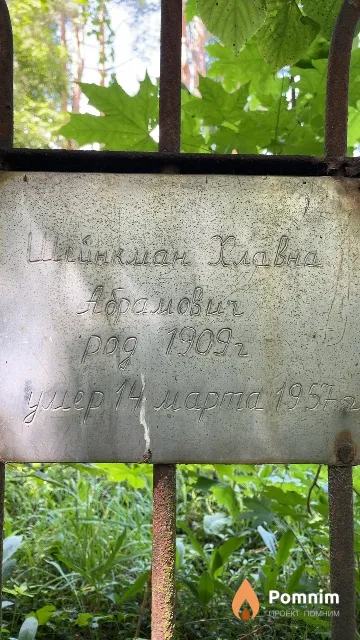 Шейнкман Хлавна
Абрамович
род 1909г
умер 14 марта 1957г
Pomnim
ПРОЕКТ ПОМНИМ